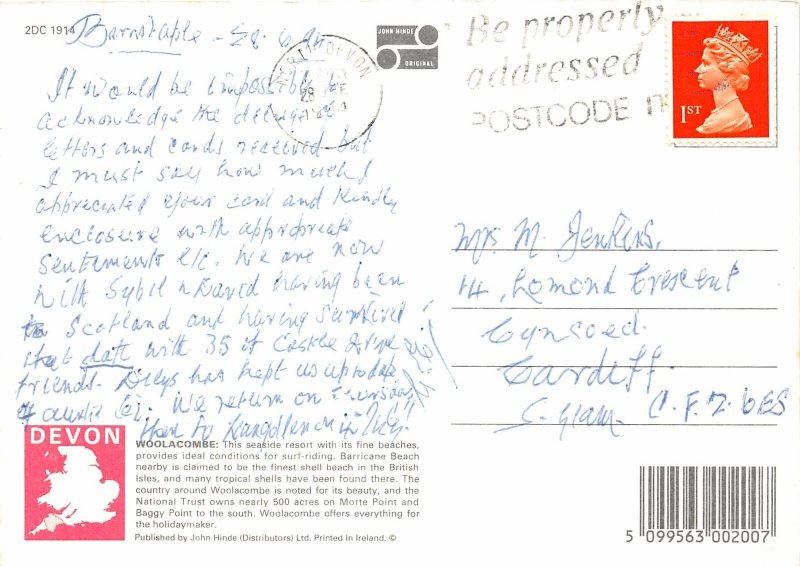 2DC 1914
Barnstaple - 28.6.94
It would be impossible to
acknowledge the deluge of
letters and cards received but
I must say how much I
appreciated your card and kindly
enclosure with appropriate
sentiments etc. We are now
with Sybil & David having been
to Scotland and having survived
that date with 35 of
friends. Dilys has kept us up to date
of auntie We return on Thursday
then to Llangollen
JOHN HINDE
ORIGINAL
NORTH DEVON
28
Be properly
addressed
POSTCODE IT
1ST
Mrs. M. Jenkins,
14, Lomond Crescent
Cyncoed.
Cardiff.
S. Glam. C.F.2. 6ES
DEVON
WOOLACOMBE: This seaside resort with its fine beaches,
provides ideal conditions for surf-riding. Barricane Beach
nearby is claimed to be the finest shell beach in the British
Isles, and many tropical shells have been found there. The
country around Woolacombe is noted for its beauty, and the
National Trust owns nearly 500 acres on Morte Point and
Baggy Point to the south. Woolacombe offers everything for
the holidaymaker.
Published by John Hinde (Distributors) Ltd. Printed in Ireland. ©
5 099563 002007